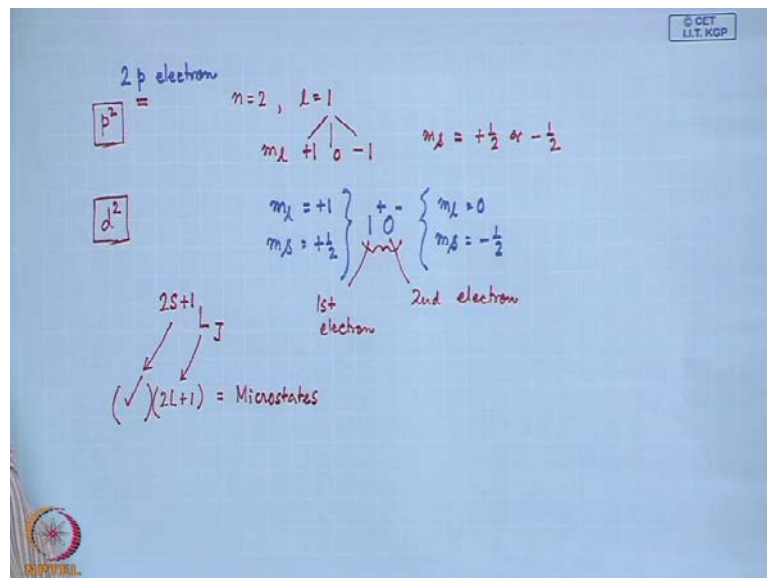 © CET
I.I.T. KGP
2 p electron
p² n=2, l=1
mₗ +1 0 -1 mₛ = +½ or -½
d² mₗ = +1 + - mₗ = 0
mₛ = +½ 1 0 mₛ = -½
1st electron 2nd electron
2S+1 L J
(✓)(2L+1) = Microstates
NPTEL